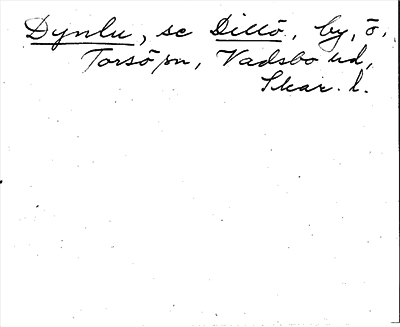 Dynlu, se Dillö, by, ö,
Torsö sn, Vadsbo hd,
Skar. l.